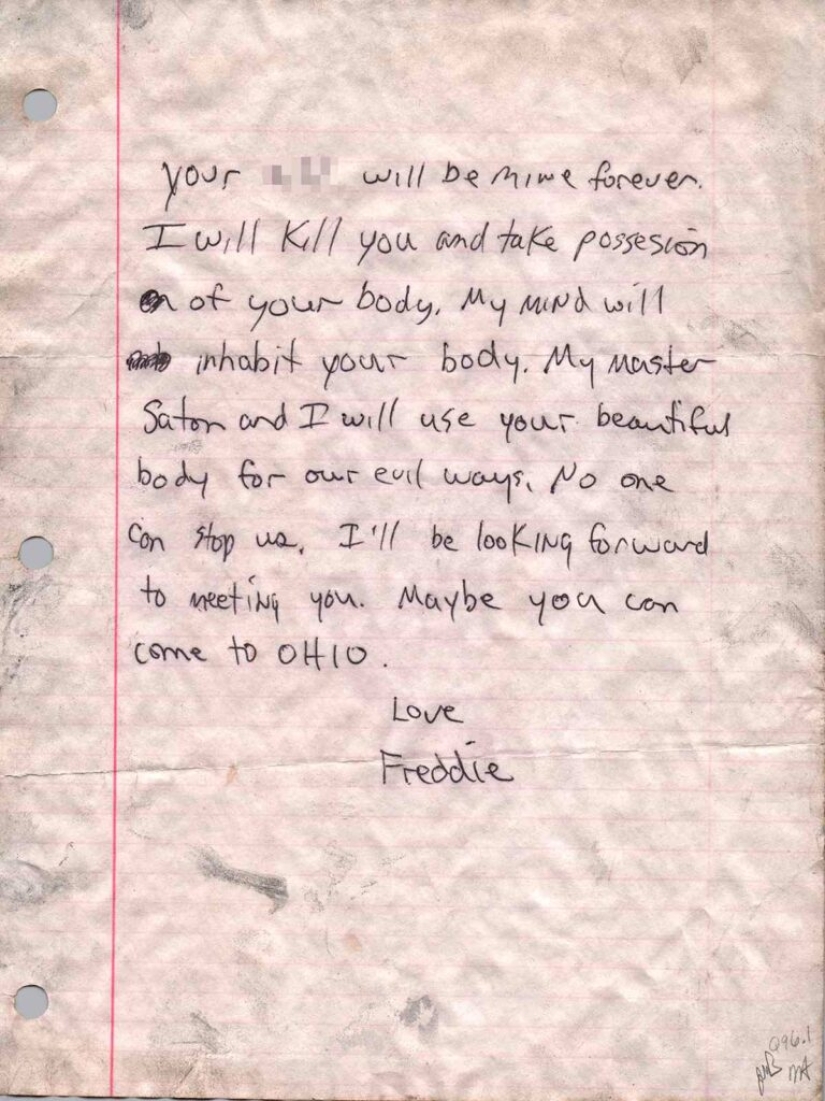 your will be mine forever.
I will Kill you and take possesion
of your body. My MIND will
inhabit your body. My master
Satan and I will use your beautiful
body for our evil ways. No one
can stop us. I'll be looKING forward
to meeting you. Maybe you can
come to OHIO.
Love
Freddie
Q96.1